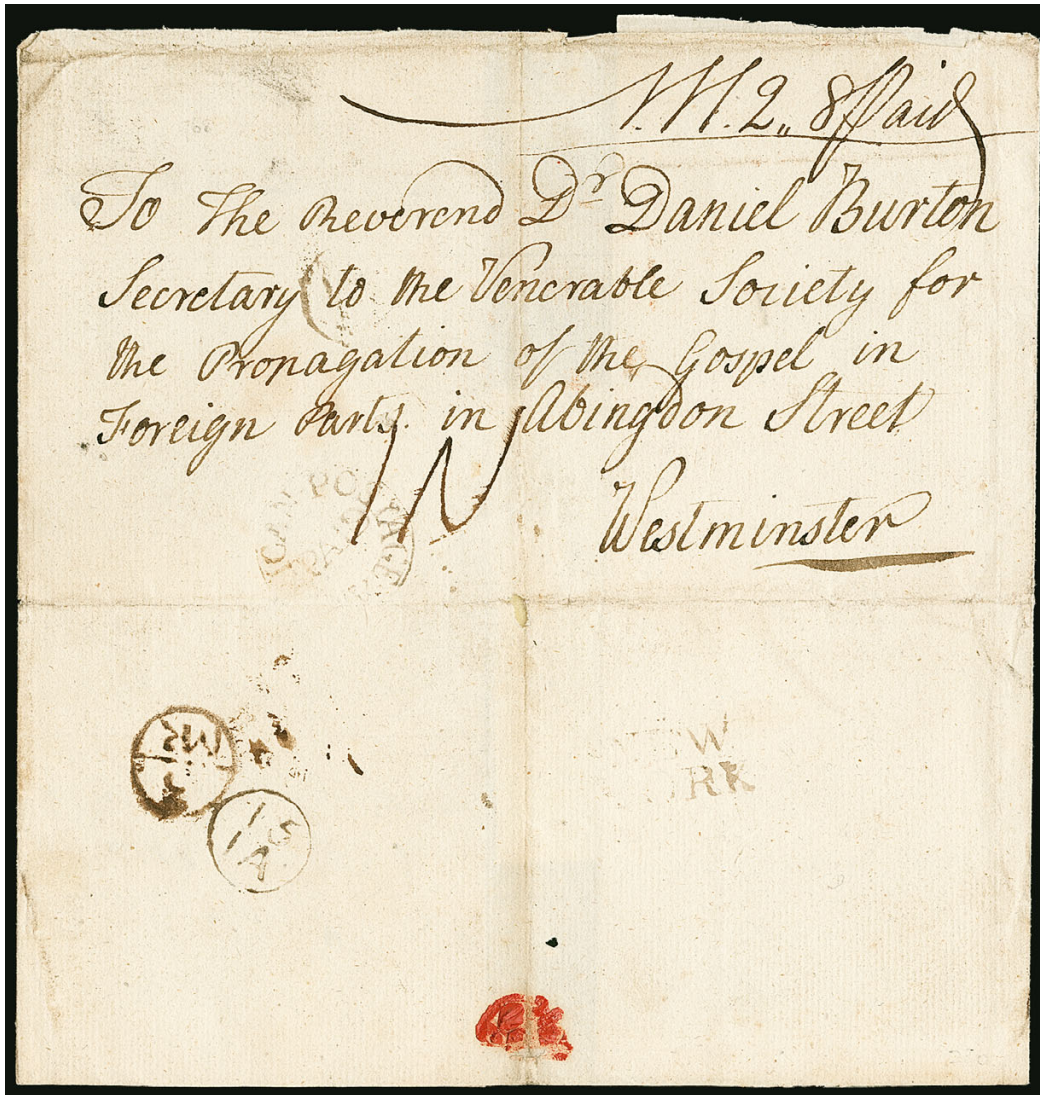 N. 2,, 8 Paid
To The Reverend Dr Daniel Burton
Secretary to the Venerable Society for
the Propagation of the Gospel in
Foreign Parts. in Abingdon Street
Westminster
IN
POSTAGE
MR
15
IA
NEW
YORK